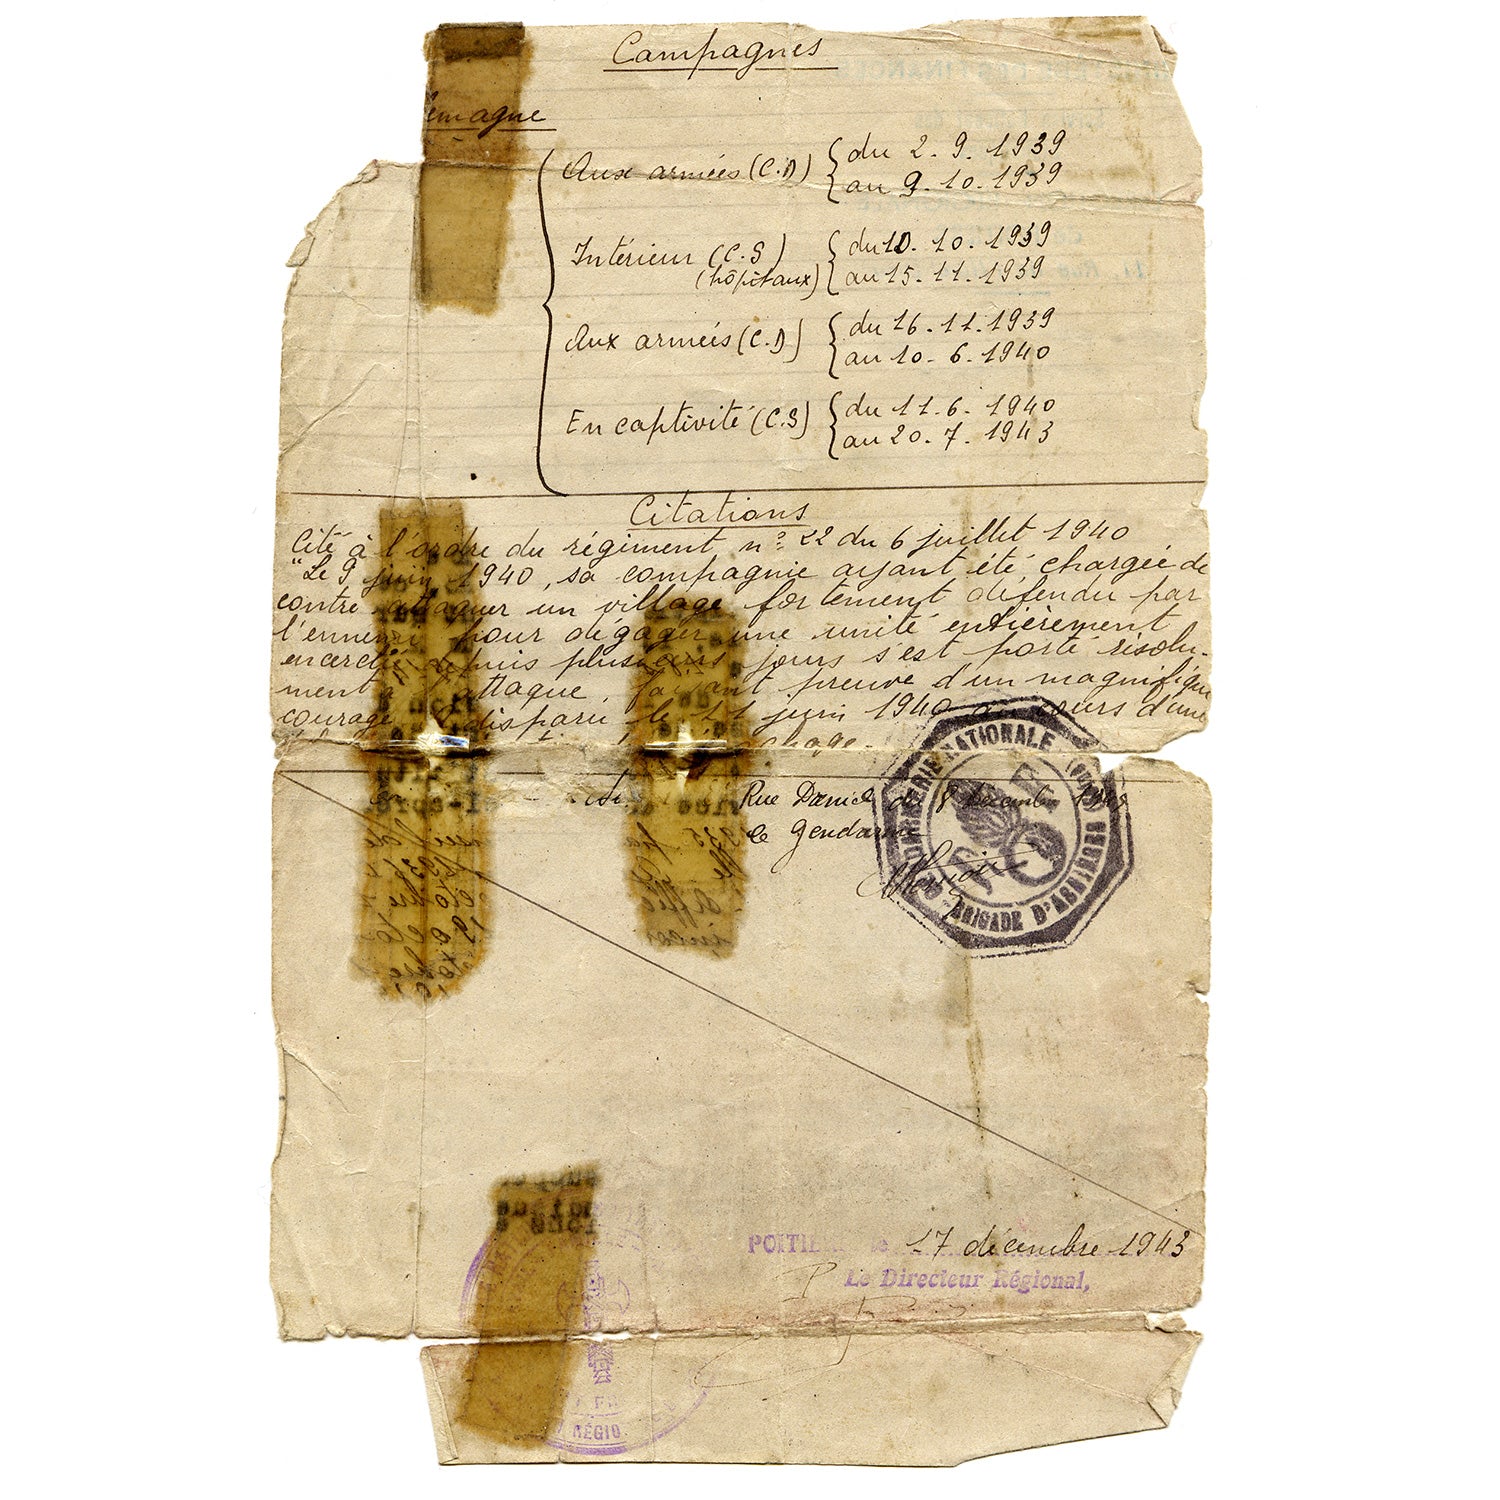 Campagnes
emagne
Aux armées (C.D) du 2. 9. 1939
au 9. 10. 1939
Intérieur (C.S) du 10. 10. 1939
(hôpitaux) au 15. 11. 1939
Aux armées (C.D) du 16. 11. 1939
au 10. 6. 1940
En captivité (C.S) du 11. 6. 1940
au 20. 7. 1943
Citations
Cité à l'ordre du régiment n° 22 du 6 juillet 1940
"Le 9 juin 1940, sa compagnie ayant été chargée de
contre attaquer un village fortement défendu par
l'ennemi pour dégager une unité entièrement
encerclée depuis plusieurs jours s'est porté résolu-
ment à l'attaque, faisant preuve d'un magnifique
courage disparu le 11 juin 1940 au cours d'une
Rue Daniel du 8 décembre
le Gendarme
GENDARMERIE NATIONALE
RF
BRIGADE D'
POITIE le 17 décembre 1943
P Le Directeur Régional,
RÉGIO